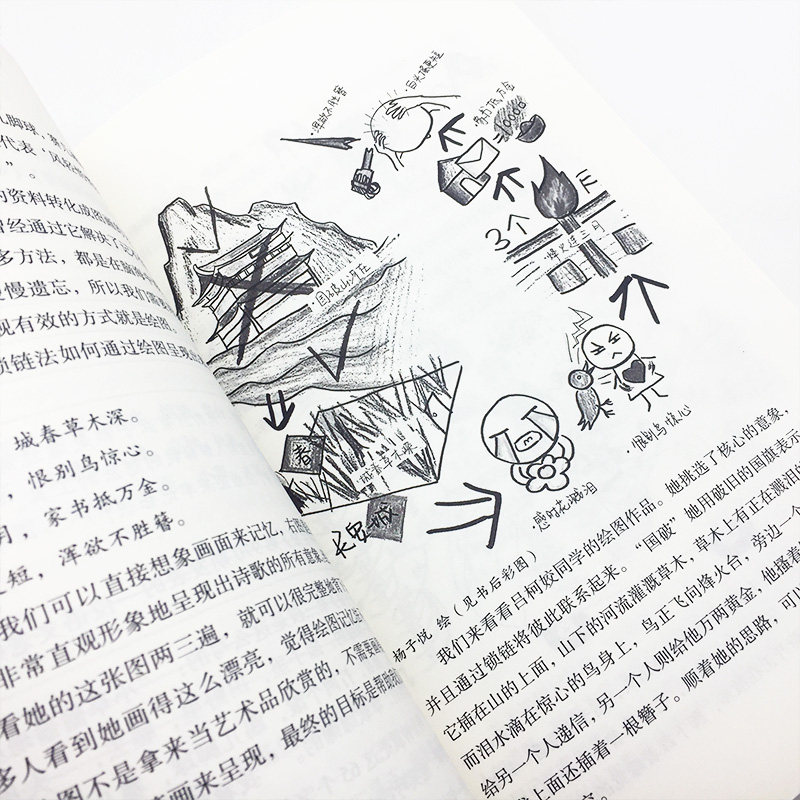 儿脚球、
代表‘风
”。
的资料转化成图画
曾经通过它解决了
多方法，都是在脑
慢慢遗忘，所以我们
现有效的方式就是绘图
锁链法如何通过绘图呈现
城春草木深。
恨别鸟惊心。
月，家书抵万金。
短，浑欲不胜簪。
我们可以直接想象画面来记忆，
非常直观形象地呈现出诗歌的所有意象
看她的这张图两三遍，就可以很完整地
多人看到她画得这么漂亮，觉得绘图记忆
图不是拿来当艺术品欣赏的，不需要画
画来呈现，最终的目标是帮助我
·浑欲不胜簪
·白头搔更短
家书抵万金
10000
3个
E
·烽火连三月
·国破山河在
春
·城春草木深
·恨别鸟惊心
·感时花溅泪
杨子悦 绘（见书后彩图）
我们来看看吕柯姣同学的绘图作品。她挑选了核心的意象，
并且通过锁链将彼此联系起来。“国破”她用破旧的国旗表示
它插在山的上面，山下的河流灌溉草木，草木上有正在溅泪的
而泪水滴在惊心的鸟身上，鸟正飞向烽火台，旁边一个
给另一个人递信，另一个人则给他万两黄金，他搔着
上面还插着一根簪子。顺着她的思路，可以